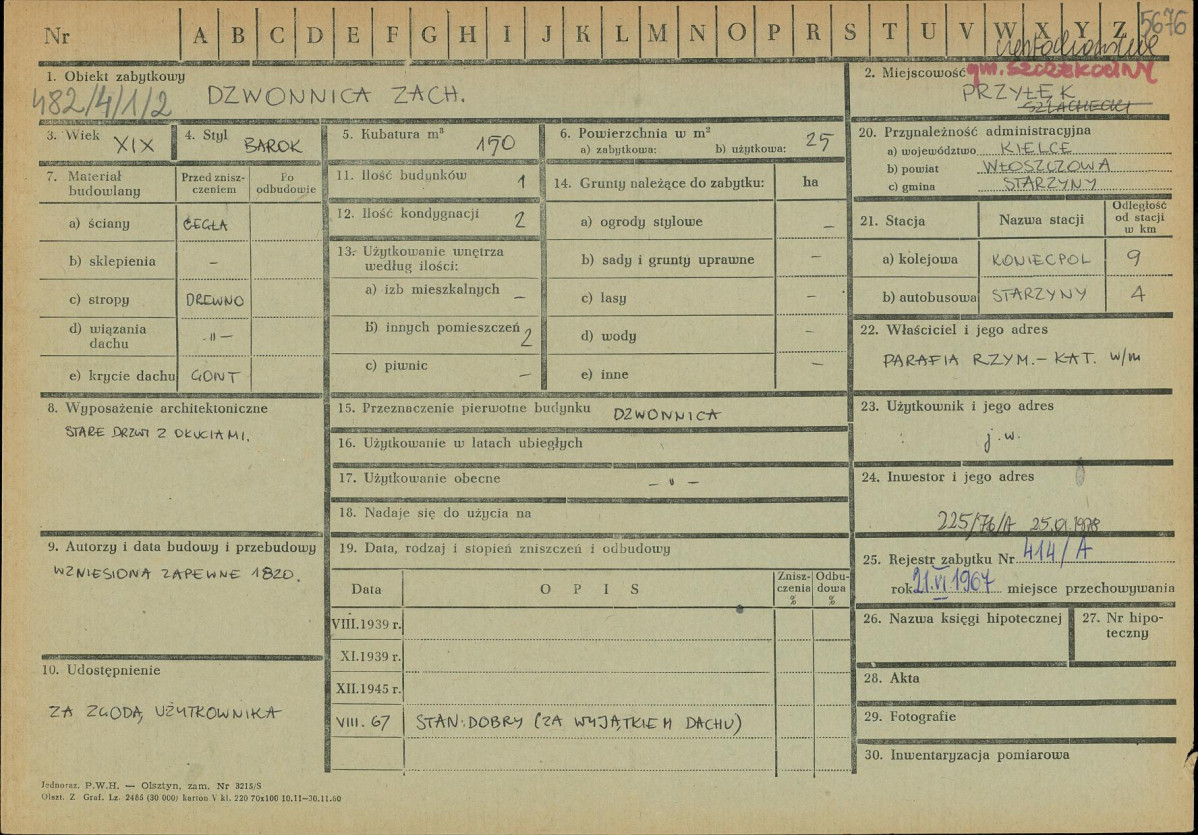 Nr A B C D E F G H I J K L M N O P R S T U V W X Y Z 5676
1. Obiekt zabytkowy
482/4/1/2 DZWONNICA ZACH.
2. Miejscowość gm. SZCZEKOCINY
PRZYŁĘK
SZLACHECKI
3. Wiek XIX
4. Styl BAROK
5. Kubatura m³ 150
6. Powierzchnia w m²
a) zabytkowa: b) użytkowa: 25
7. Materiał budowlany
Przed zniszczeniem
Po odbudowie
a) ściany CEGŁA
b) sklepienia –
c) stropy DREWNO
d) wiązania dachu -"-
e) krycie dachu GONT
8. Wyposażenie architektoniczne
STARE DRZWI Z OKUCIAMI.
9. Autorzy i data budowy i przebudowy
WZNIESIONA ZAPEWNE 1820.
10. Udostępnienie
ZA ZGODĄ UŻYTKOWNIKA
11. Ilość budynków 1
12. Ilość kondygnacji 2
13. Użytkowanie wnętrza według ilości:
a) izb mieszkalnych –
b) innych pomieszczeń 2
c) piwnic –
14. Grunty należące do zabytku: ha
a) ogrody stylowe –
b) sady i grunty uprawne –
c) lasy –
d) wody –
e) inne –
15. Przeznaczenie pierwotne budynku DZWONNICA
16. Użytkowanie w latach ubiegłych
17. Użytkowanie obecne – " –
18. Nadaje się do użycia na
19. Data, rodzaj i stopień zniszczeń i odbudowy
Data O P I S Zniszczenia % Odbudowa %
VIII.1939 r.
XI.1939 r.
XII.1945 r.
VIII. 67 STAN: DOBRY (ZA WYJĄTKIEM DACHU)
20. Przynależność administracyjna
a) województwo KIELCE
b) powiat WŁOSZCZOWA
c) gmina STARZYNY
21. Stacja Nazwa stacji Odległość od stacji w km
a) kolejowa KONIECPOL 9
b) autobusowa STARZYNY 4
22. Właściciel i jego adres
PARAFIA RZYM.– KAT. w/m
23. Użytkownik i jego adres
j.w.
24. Inwestor i jego adres
225/76/A 25.01.1978
25. Rejestr zabytku Nr 414/A
rok 21.VI 1967 miejsce przechowywania
26. Nazwa księgi hipotecznej
27. Nr hipoteczny
28. Akta
29. Fotografie
30. Inwentaryzacja pomiarowa
Jednoraz. P.W.H. — Olsztyn, zam. Nr 3215/S
Olszt. Z Graf. Lz. 2485 (30 000) karton V kl. 220 70x100 10.11—30.11.60